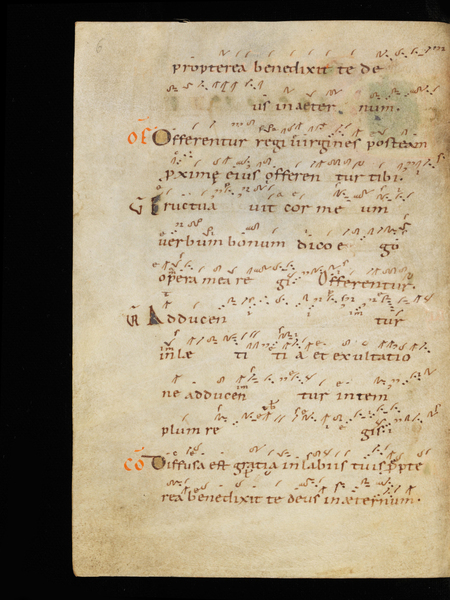 6
propterea benedixit te de
us in aeter num.
OF Offerentur regi virgines post eam
pxime eius offeren tur tibi.
Eructua uit cor me um
uerbum bonum dico e go
opera mea re gi Offerentur.
Adducen tur
in lae ti ti a et exultatio
ne adducen tur in tem
plum re gis
CO Diffusa est gratia in labiis tuis ppte
rea benedixit te deus in aeternum.